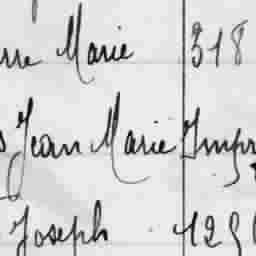 Marie 318
Jean Marie Impr
Joseph 129